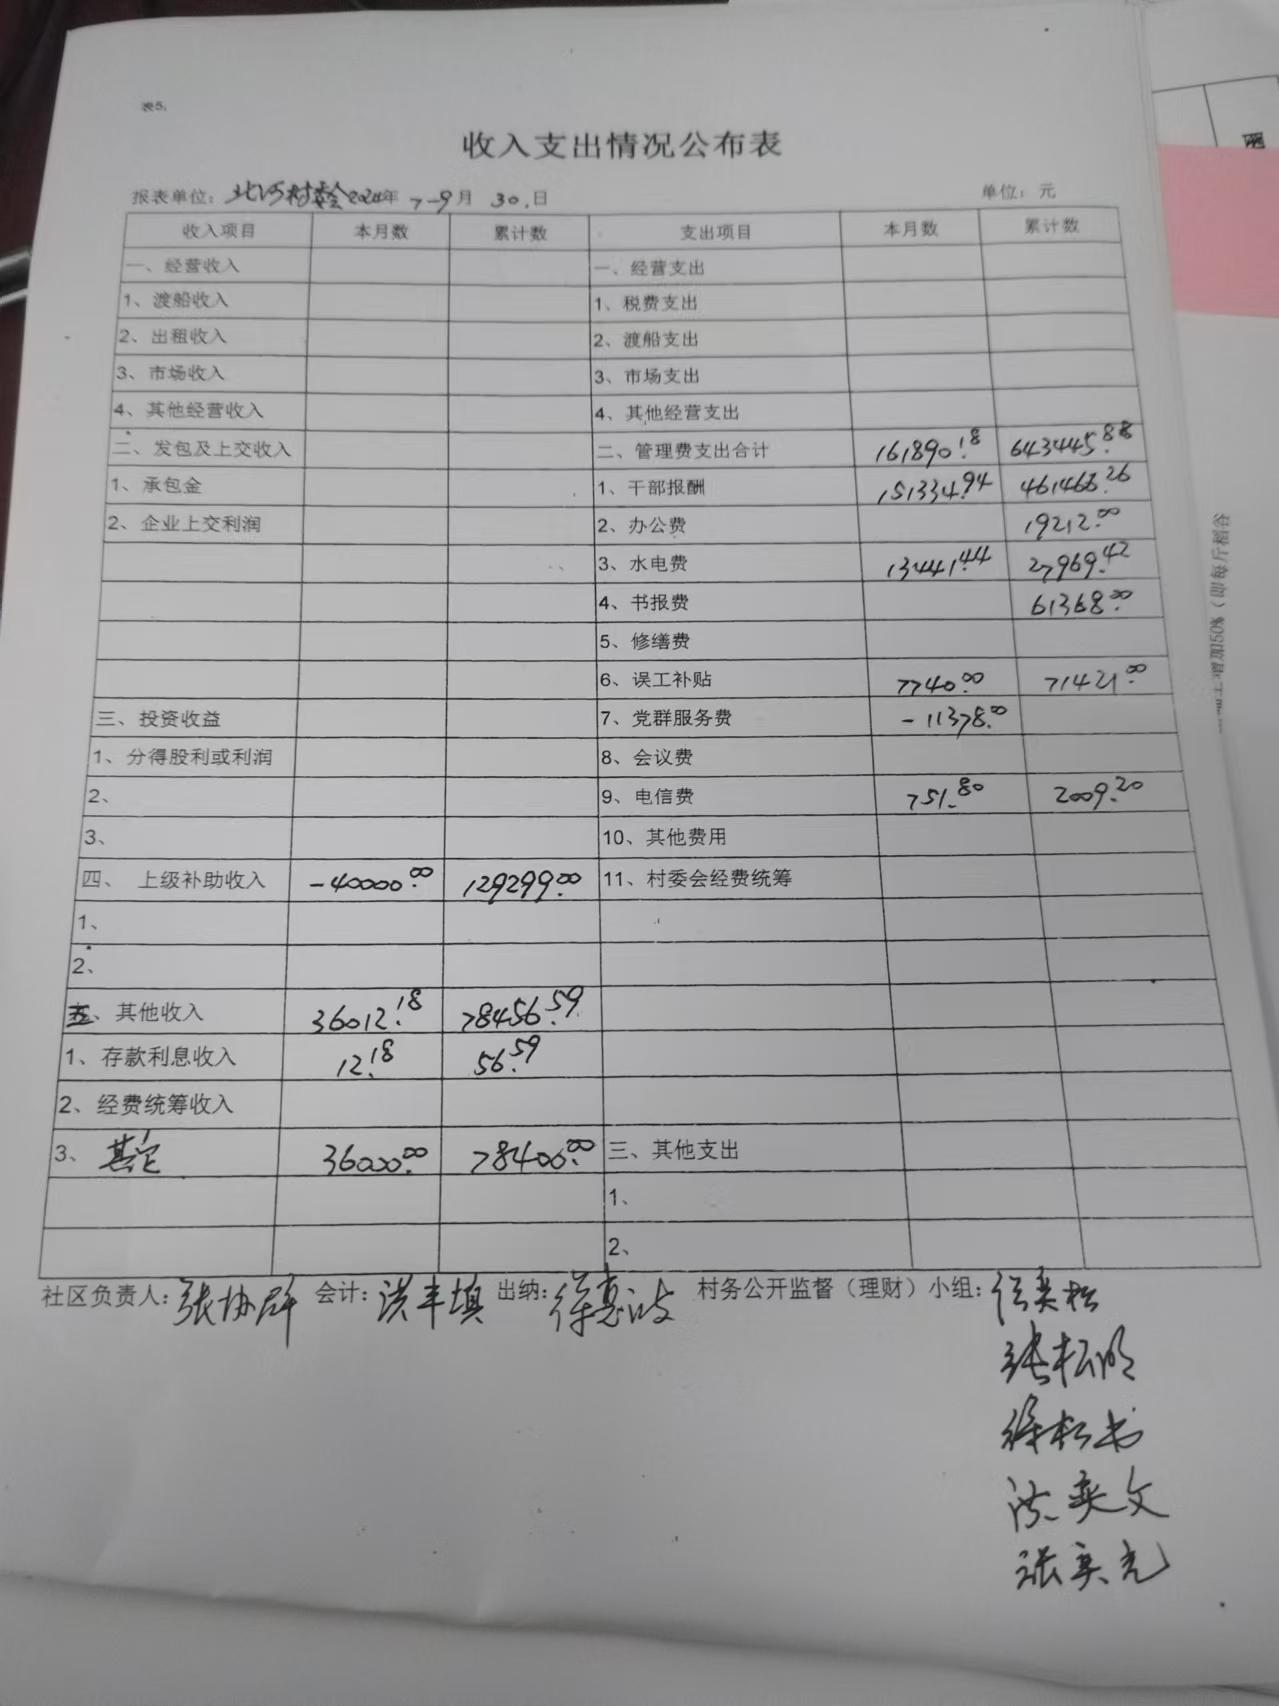 表5,
收入支出情况公布表
报表单位：北河村委会2024年 7-9月 30.日 单位：元
收入项目 本月数 累计数 支出项目 本月数 累计数
一、经营收入 一、经营支出
1、渡船收入 1、税费支出
2、出租收入 2、渡船支出
3、市场收入 3、市场支出
4、其他经营收入 4、其他经营支出
二、发包及上交收入 二、管理费支出合计 161890.18 643445.88
1、承包金 1、干部报酬 151334.94 461466.26
2、企业上交利润 2、办公费 19212.00
3、水电费 13441.44 27969.42
4、书报费 61368.00
5、修缮费
6、误工补贴 7740.00 71421.00
三、投资收益 7、党群服务费 -11378.00
1、分得股利或利润 8、会议费
2、 9、电信费 751.80 2009.20
3、 10、其他费用
四、上级补助收入 -40000.00 129299.00 11、村委会经费统筹
1、
2、
五、其他收入 36012.18 78456.59
1、存款利息收入 12.18 56.59
2、经费统筹收入
3、其它 36000.00 78400.00 三、其他支出
1、
2、
社区负责人：张协群 会计：洪丰填 出纳：徐惠波 村务公开监督（理财）小组：徐奕松
张松明
徐松书
洪奕文
张奕光
增加50%（即每斤稻谷